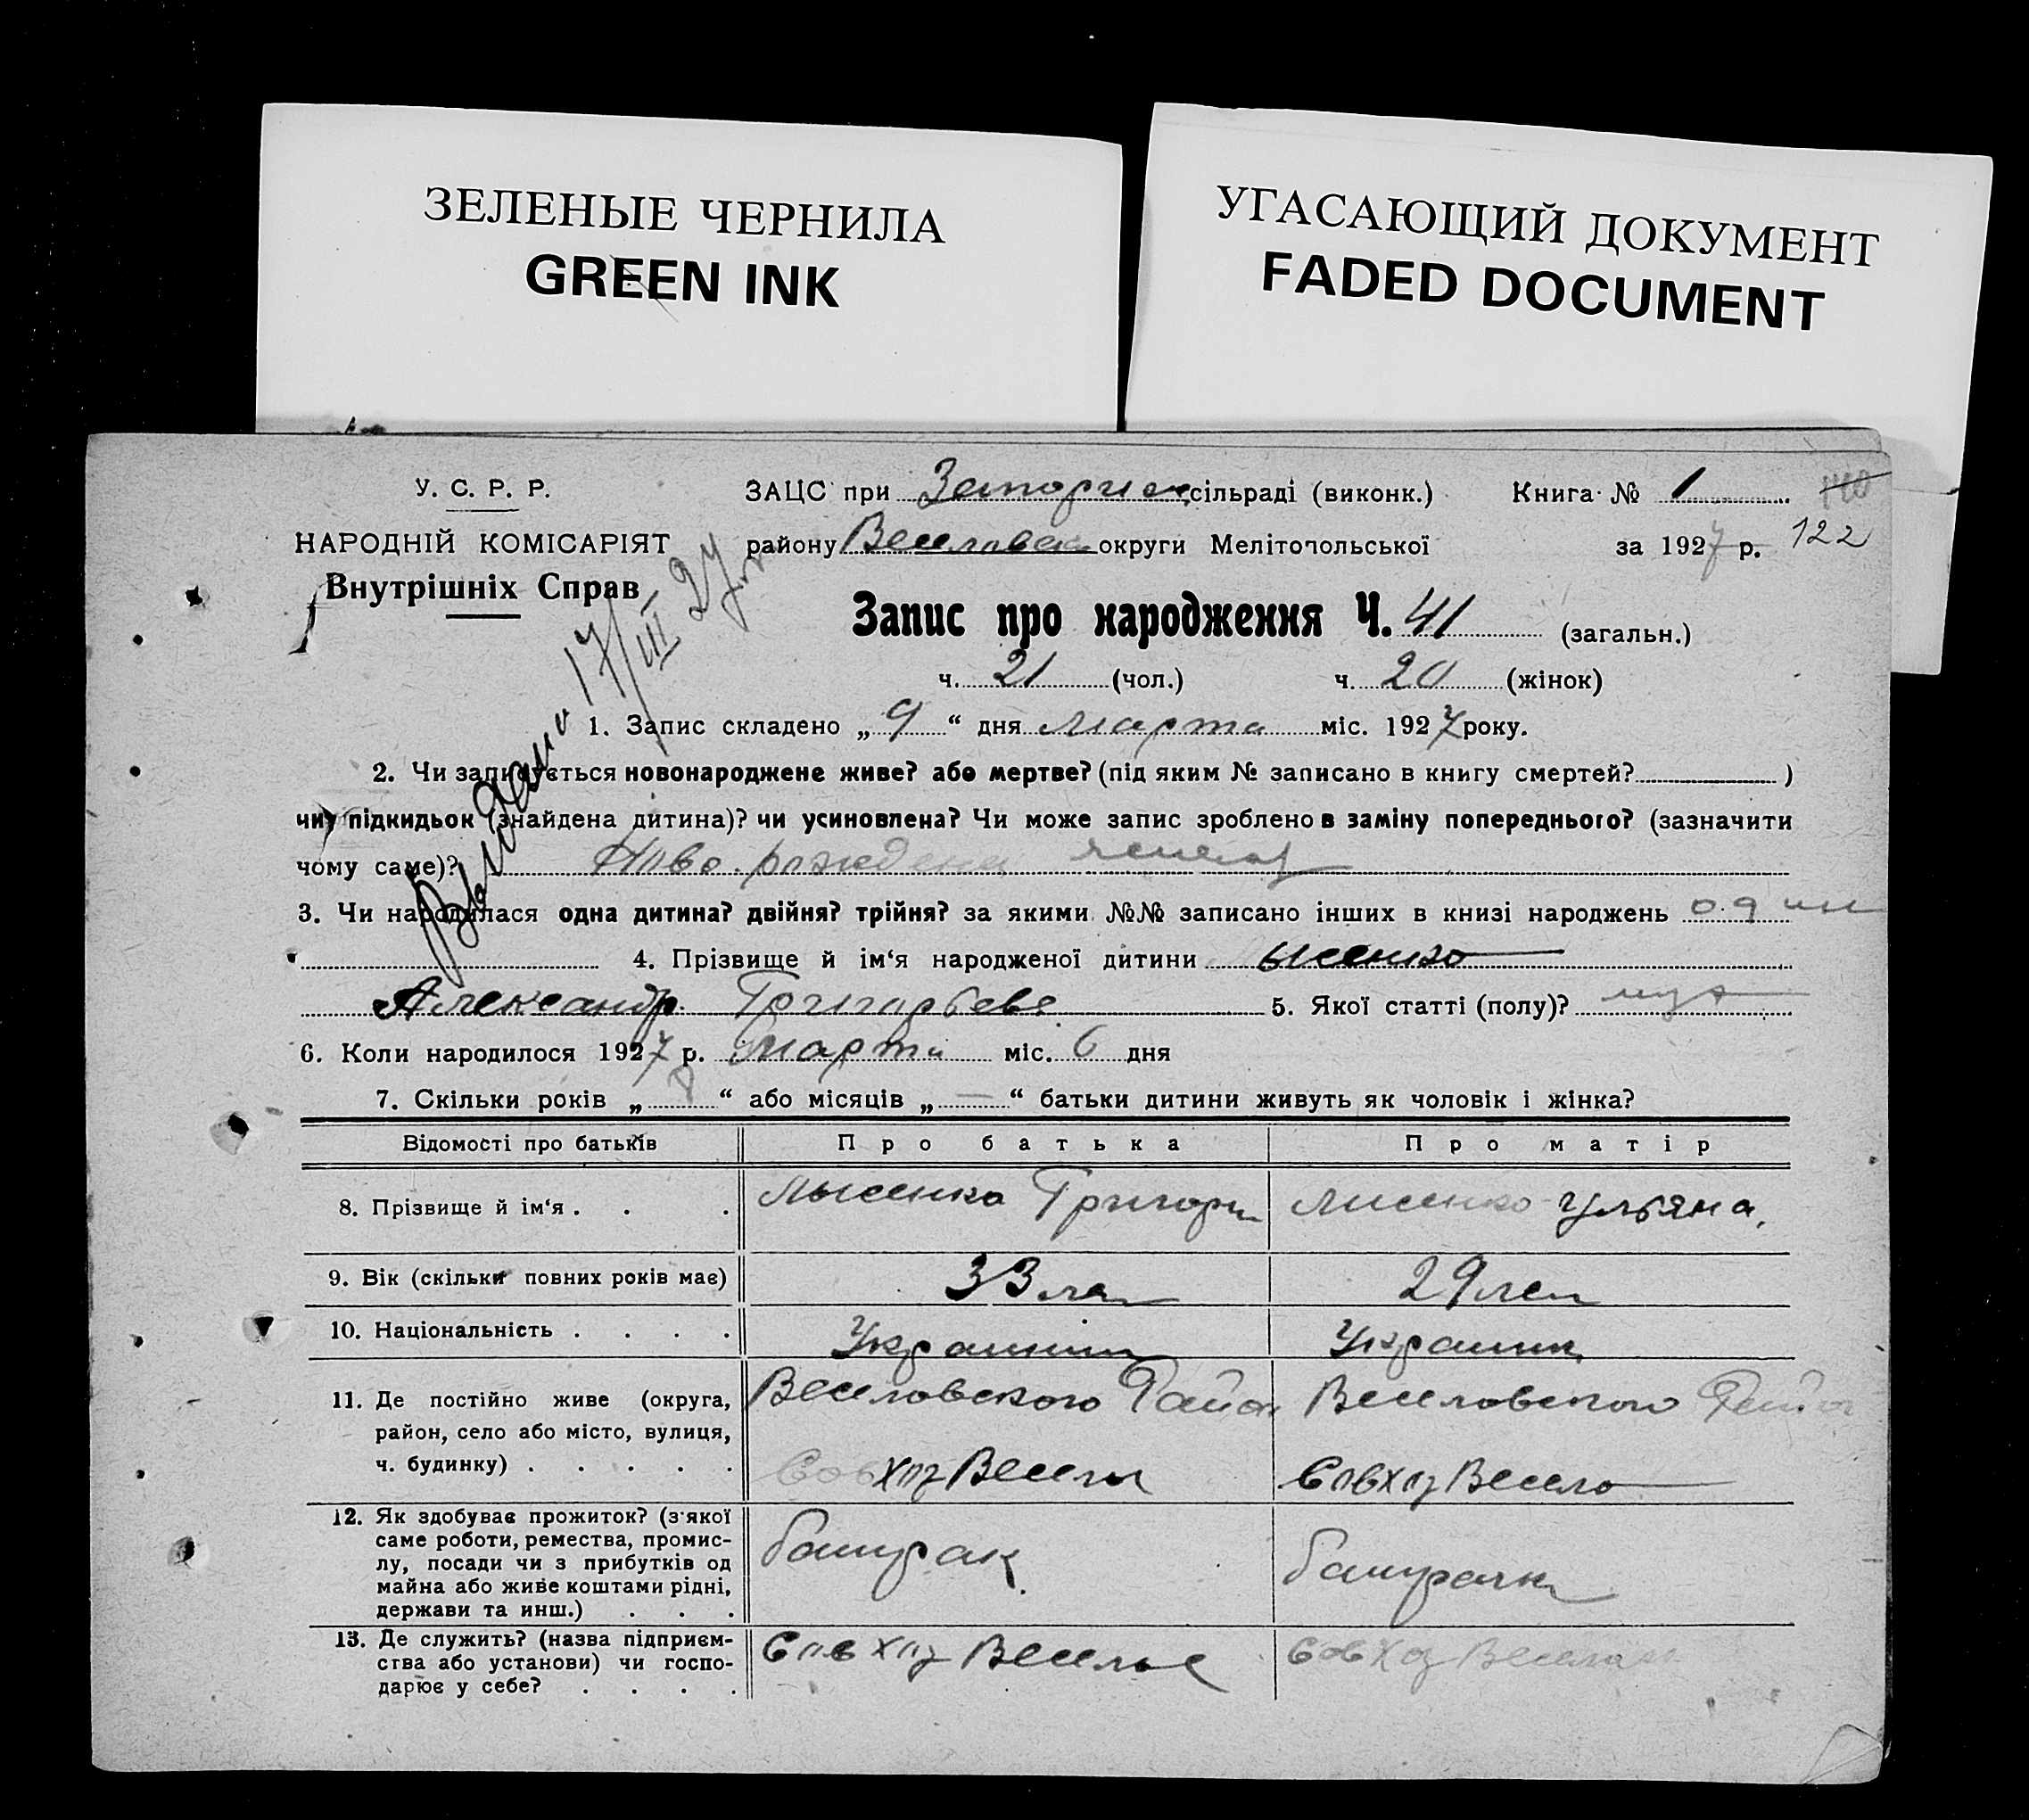 ЗЕЛЕНЫЕ ЧЕРНИЛА
GREEN INK
УГАСАЮЩИЙ ДОКУМЕНТ
FADED DOCUMENT
У. С. Р. Р.
НАРОДНІЙ КОМІСАРІЯТ
Внутрішніх Справ
Выдано 17/III 27 г.
ЗАЦС при сільраді (виконк.) Книга № 1 140
району Веселовск округи Мелітопольської за 1927 р. 122
Запис про народження Ч. 41 (загальн.)
ч. 21 (чол.) ч. 20 (жінок)
1. Запис складено „ 9 “ дня марта міс. 1927 року.
2. Чи записується новонароджене живе? або мертве? (під яким № записано в книгу смертей? )
чи підкидьок (знайдена дитина)? чи усиновлена? Чи може запис зроблено в заміну попереднього? (зазначити
чому саме)? Ново рожден
3. Чи народилася одна дитина? двійня? трійня? за якими №№ записано інших в книзі народжень один
4. Прізвище й ім‘я народженої дитини Лысенко
Александр Григорьеве 5. Якої статті (полу)? муж
6. Коли народилося 1927 р. Марта міс. 6 дня
7. Скільки років „ 8 “ або місяців „ — “ батьки дитини живуть як чоловік і жінка?
Відомості про батьків Про батька Про матір
8. Прізвище й ім‘я . . . Лысенко Григори Лисенко Ульяна.
9. Вік (скільки повних років має) 33 ле 29 лет
10. Національність . . . . Украинц Украинк
11. Де постійно живе (округа, Веселовского Район Веселовского Район
район, село або місто, вулиця,
ч. будинку) . . . . . Совхоз Веселы Совхоз Весело
12. Як здобуває прожиток? (з якої
саме роботи, ремества, промис-
лу, посади чи з прибутків од батрак батрачка
майна або живе коштами рідні,
держави та инш.) . . .
13. Де служить? (назва підприєм- Совхоз Веселые Совхоз Весел
ства або установи) чи госпо-
дарює у себе? . . . .